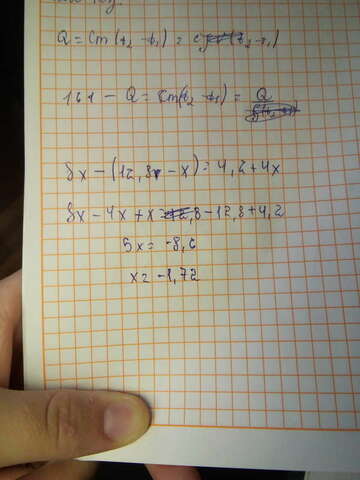 Q = cm(t₂ - t₁) =
161 - Q = cm(t₂ - t₁) = Q
8x - (12,8 - x) = 4,2 + 4x
8x - 4x + x = - 12,8 + 4,2
5x = -8,6
x = -1,72